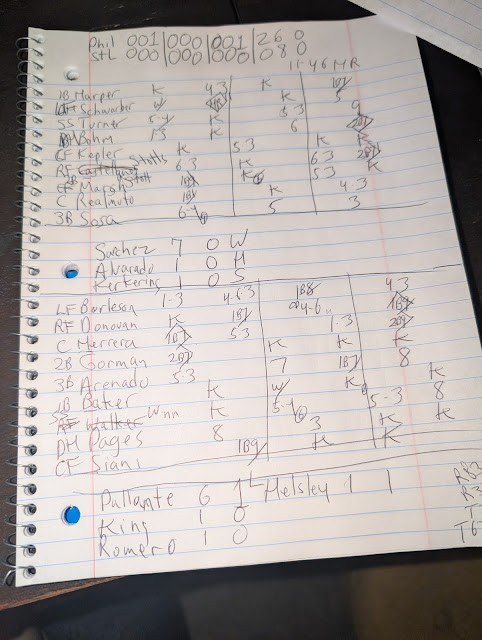 Phil 001 000 001 2 6 0
StL 000 000 000 0 8 0
11:46 MR
1B Harper K 4-3 K 1B7
Schwarber W K 5
SS Turner 5-4 K 5-3 9
Bohm 1-3 K 6
CF Kepler 5 3 K K
RF Castellanos Stotts 6 3 K 6 3 2B7
Marsh Stott 1B K 5 3 K
C Realmuto 1B K 4-3
3B Sosa 6-4 5 3
Sanchez 7 0 W
Alvarado 1 0 H
Kerkering 1 0 S
LF Burleson 1-3 4-6 3 1B8 4-3
RF Donovan K 1B7 4-6 1B9
C Herrera 1B7 5 3 1-3 2B7
2B Gorman 2B7 K K K
3B Arenado 5-3 7 1B7 8
1B Baker K W K K
SS Walker Winn K 5-4 5-3 8
DH Pages 8 3 K K
CF Siani 1B9 K K
Pallante 6 1 L Helsley 1 1
King 1 0
Romero 1 0